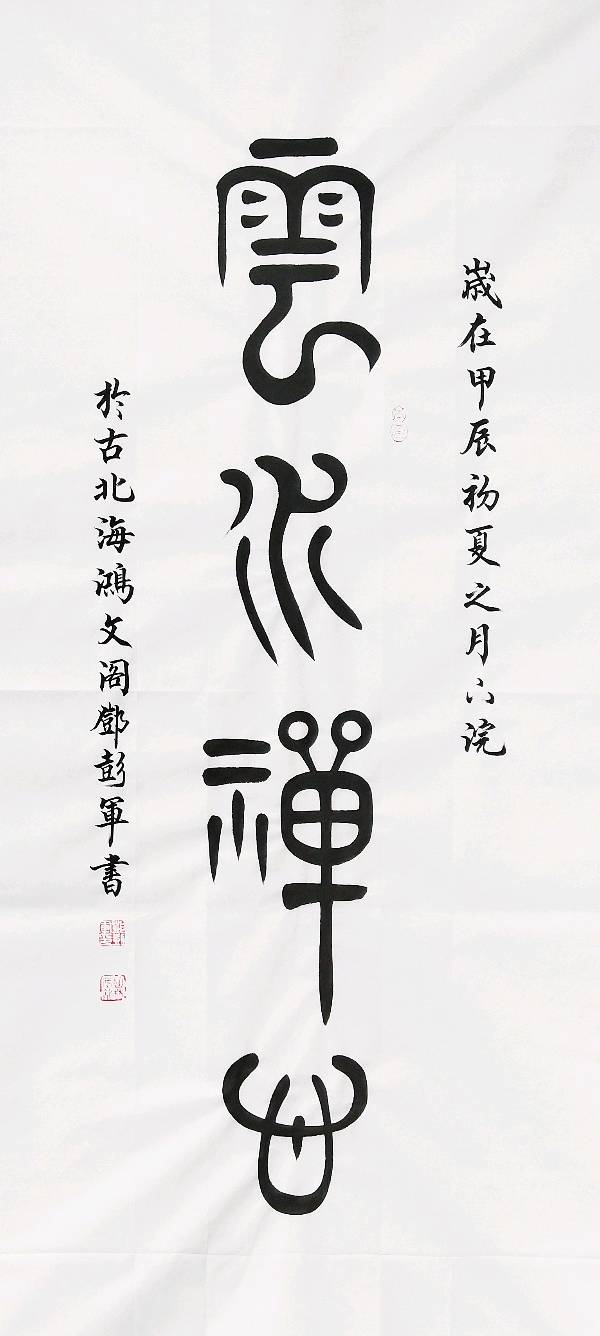 歲在甲辰初夏之月下浣
雲水禪心
於古北海鴻文閣鄧彭軍書